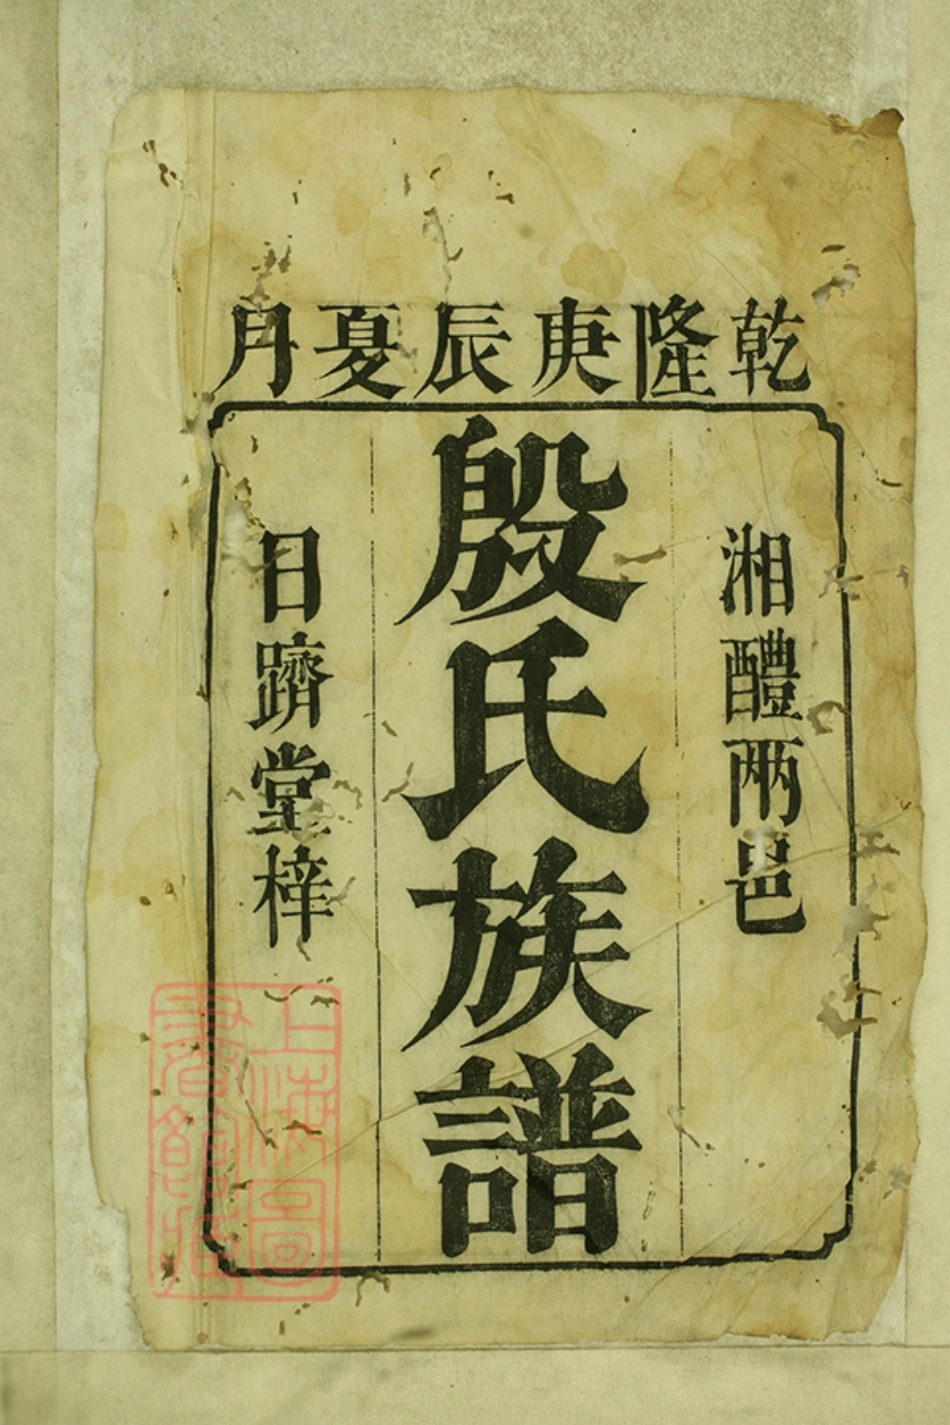 乾隆庚辰夏月
湘醴兩邑
殷氏族譜
日躋堂梓
上海圖
書館藏